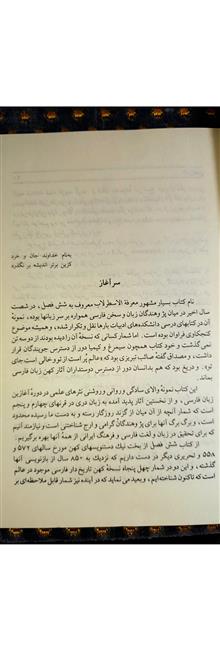 بنام خداوند جان و خرد
کزین برتر اندیشه بر نگذرد
سرآغاز
نام کتاب بسیار مشهور معرفة الاسطرلاب معروف به شش فصل، در شصت
سال اخیر در میان پژوهندگان زبان و سخن فارسی همواره بر سر زبانها بوده، نمونهٔ
آن در کتابهای درسی دانشکده‌های ادبیات بارها نقل و تکرار شده، و همیشه موضوع
کنجکاوی فراوان بوده است. اما شمار کسانی که نسخهٔ آن را دیده‌اند از دو سه تن
نمی‌گذشت و خود کتاب همچون سیمرغ و کیمیا دور از دسترس جویندگان قرار
داشت، و مصداق گفتهٔ صائب تبریزی بود که «عالم پر است از تو و خالی است جای
تو». و دریغ بود که هم بدانسان دور از دسترس دوستداران آثار کهن زبان فارسی
بماند.
این کتاب نمونهٔ والای سادگی و روانی و روشنی نثرهای علمی در دورهٔ آغازین
زبان فارسی، و از نخستین آثار پدید آمده به زبان دری در قرنهای چهارم و پنجم
است که شمار آنچه از آن میان از گزند روزگار رسته و به دست ما رسیده محدود
است، و برگ برگ آنها برای پژوهندگان گرامی و ارج شناختنی است و نیازمند آنیم
که برای تحقیق در زبان و لغت فارسی و فرهنگ ایرانی از همهٔ آنها بهره برگیریم.
از کتاب شش فصل از بخت نیک دستنویسهای کهن مورخ سالهای ۵۷۲ و
۵۵۸ و تحریری دیگر در دست داریم که نزدیک به ۸۵۰ سال از بازنویسی آنها
گذشته، و این دو در شمار چهل پنجاه نسخهٔ کهن تاریخ‌دار فارسی موجود در عالم
است که تاکنون شناخته‌ایم، و بعید می‌نماید که در آینده نیز شمار قابل ملاحظه‌ای بر